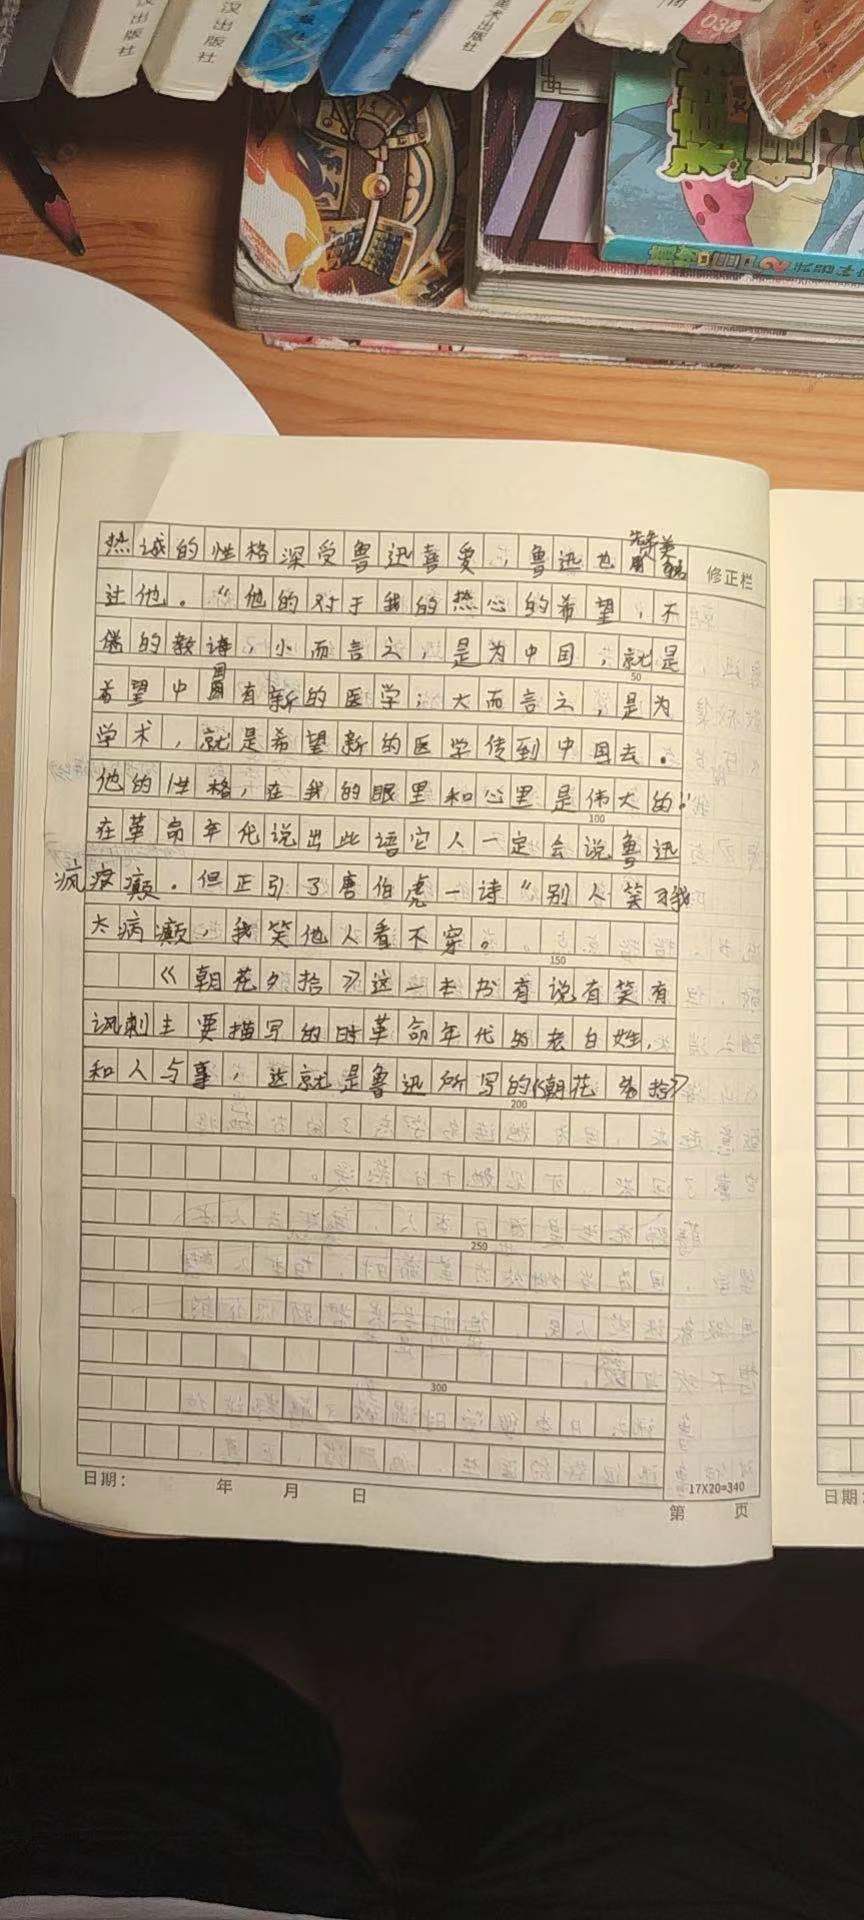 汉出版社
汉出版社
美术出版社
038
热诚的性格深受鲁迅喜爱，鲁迅也赞美
过他。“他的对于我的热心的希望，不
倦的教诲，小而言之，是为中国，就是
50
希望中国有新的医学；大而言之，是为
学术，就是希望新的医学传到中国去。
他的性格，在我的眼里和心里是伟大的”
100
在革命年代说出此语它人一定会说鲁迅
疯疫癫。但正引了唐伯虎一诗“别人笑我
太病癫，我笑他人看不穿。
150
《朝花夕拾》这一本书有说有笑有
讽刺主要描写的时革命年代的老白姓，
和人与事，这就是鲁迅所写的《朝花夕拾》
200
250
300
修正栏
17X20=340
日期： 年 月 日
第 页
日期：